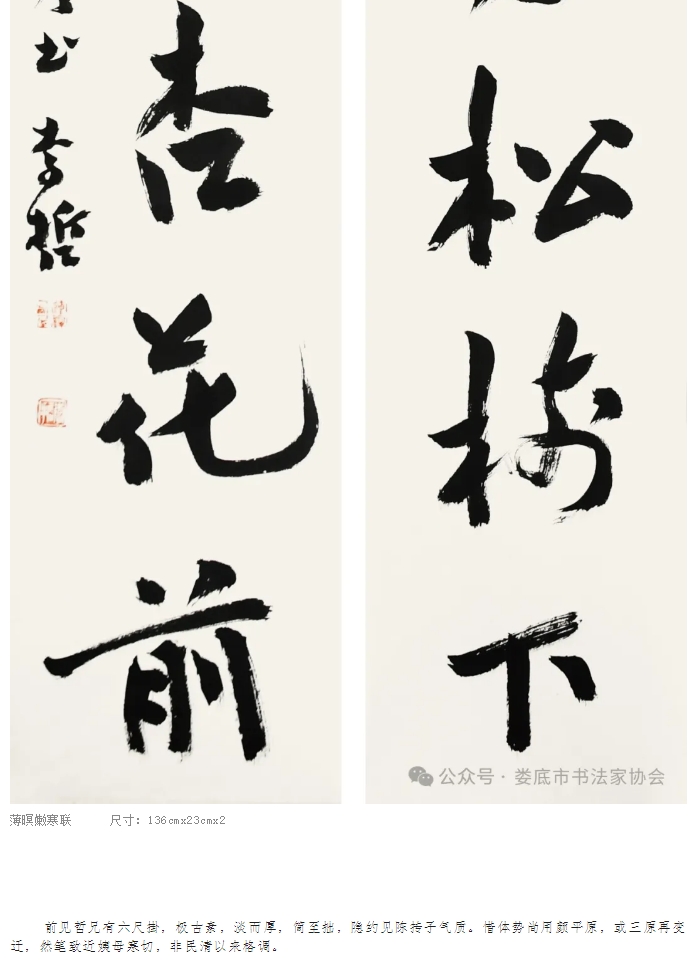 松
下
杏花前
书 李哲
公众号 · 娄底市书法家协会
薄暝嫩寒联 尺寸: 136cmx23cmx2
前见哲兄有六尺掛，极古素，淡而厚，简至拙，隐约见陈抟子气质。惜体势尚用颜平原，或三原再变
迁，然笔致近姨母寒切，非民清以来格调。